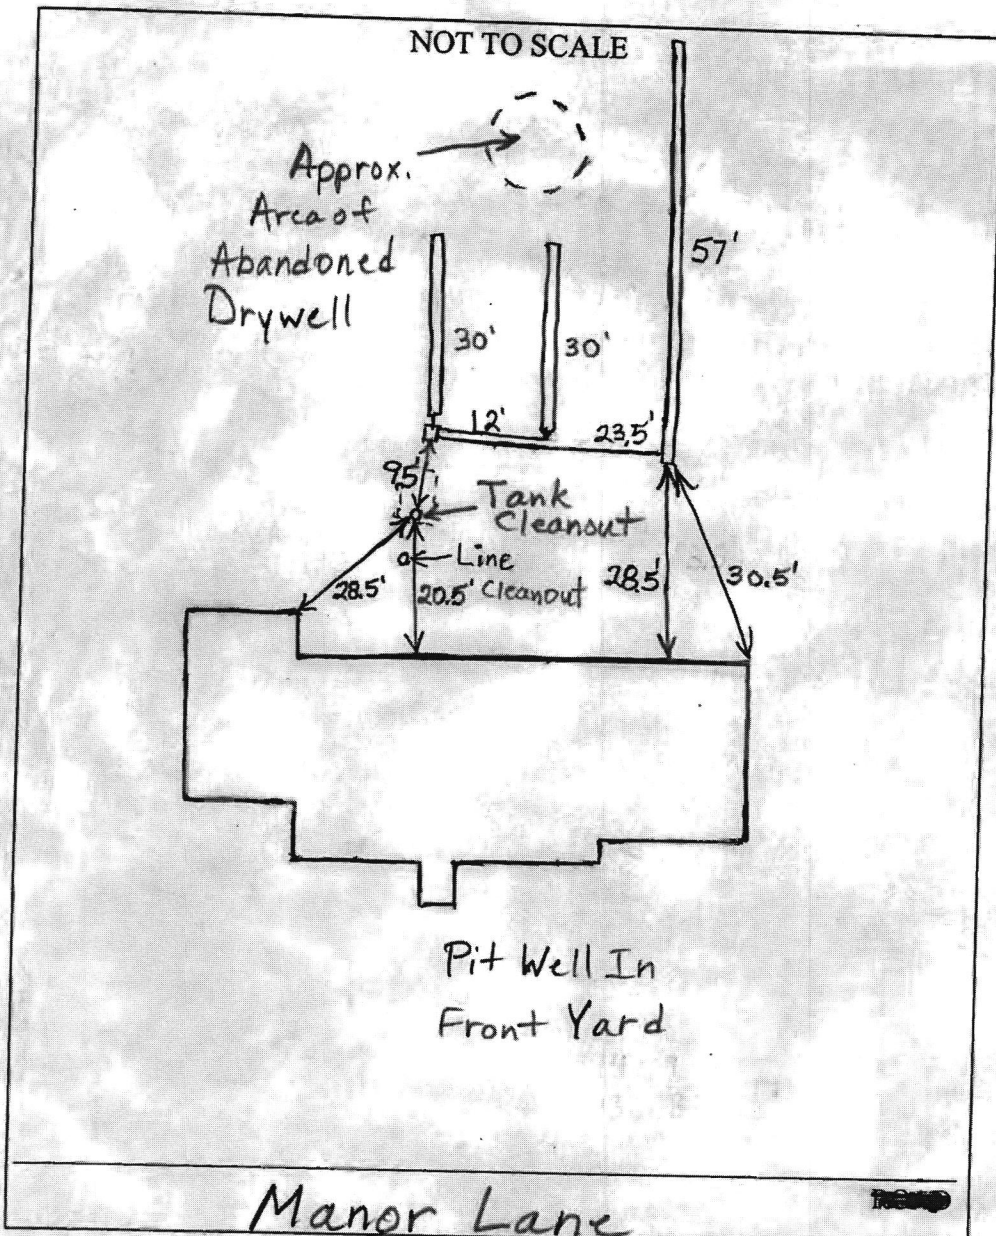 NOT TO SCALE
Approx.
Area of
Abandoned
Drywell
57'
30'
30'
12'
23.5'
9.5'
Tank
Cleanout
Line
Cleanout
28.5'
20.5'
28.5'
30.5'
Pit Well In
Front Yard
Manor Lane